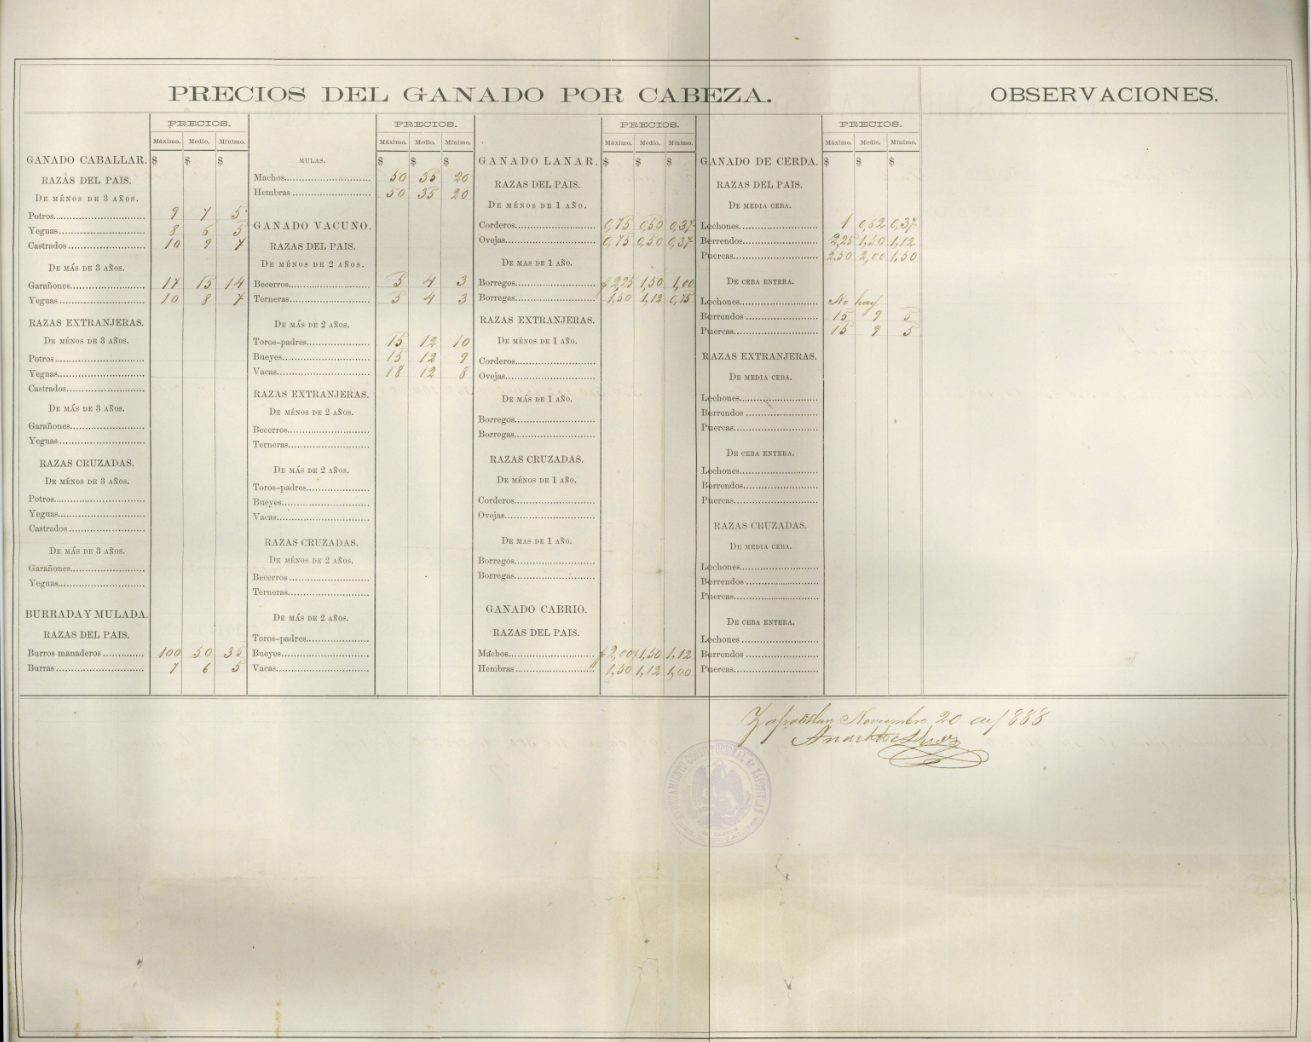 PRECIOS DEL GANADO POR CABEZA.
OBSERVACIONES.
PRECIOS.
Máximo. Medio. Mínimo.
GANADO CABALLAR. $ $ $
RAZAS DEL PAIS.
DE MÉNOS DE 3 AÑOS.
Potros 9 7 5
Yeguas 8 6 5
Castrados 10 9 7
DE MÁS DE 3 AÑOS.
Garañones 17 15 14
Yeguas 10 8 7
RAZAS EXTRANJERAS.
DE MÉNOS DE 3 AÑOS.
Potros
Yeguas
Castrados
DE MÁS DE 3 AÑOS.
Garañones
Yeguas
RAZAS CRUZADAS.
DE MÉNOS DE 3 AÑOS.
Potros
Yeguas
Castrados
DE MÁS DE 3 AÑOS.
Garañones
Yeguas
BURRADA Y MULADA.
RAZAS DEL PAIS.
Burros manaderos 100 50 35
Burras 7 6 5
PRECIOS.
Máximo. Medio. Mínimo.
MULAS. $ $ $
Machos 50 35 20
Hembras 50 35 20
GANADO VACUNO.
RAZAS DEL PAIS.
DE MÉNOS DE 2 AÑOS.
Becerros 5 4 3
Terneras 5 4 3
DE MÁS DE 2 AÑOS.
Toros-padres 15 12 10
Bueyes 15 12 9
Vacas 18 12 8
RAZAS EXTRANJERAS.
DE MÉNOS DE 2 AÑOS.
Becerros
Terneras
DE MÁS DE 2 AÑOS.
Toros-padres
Bueyes
Vacas
RAZAS CRUZADAS.
DE MÉNOS DE 2 AÑOS.
Becerros
Terneras
DE MÁS DE 2 AÑOS.
Toros-padres
Bueyes
Vacas
PRECIOS.
Máximo. Medio. Mínimo.
GANADO LANAR. $ $ $
RAZAS DEL PAIS.
DE MÉNOS DE 1 AÑO.
Corderos 0,75 0,50 0,37
Ovejas 0,75 0,50 0,37
DE MAS DE 1 AÑO.
Borregos 2,25 1,50 1,00
Borregas 1,50 1,12 0,75
RAZAS EXTRANJERAS.
DE MÉNOS DE 1 AÑO.
Corderos
Ovejas
DE MÁS DE 1 AÑO.
Borregos
Borregas
RAZAS CRUZADAS.
DE MÉNOS DE 1 AÑO.
Corderos
Ovejas
DE MAS DE 1 AÑO.
Borregos
Borregas
GANADO CABRIO.
RAZAS DEL PAIS.
Machos 2,00 1,50 1,12
Hembras 1,50 1,12 1,00
PRECIOS.
Máximo. Medio. Mínimo.
GANADO DE CERDA. $ $ $
RAZAS DEL PAIS.
DE MEDIA CEBA.
Lechones 1 0,62 0,37
Berrendos 2,25 1,50 1,12
Puercas 2,50 2,00 1,50
DE CEBA ENTERA.
Lechones No hay
Berrendos 15 9 5
Puercas 15 9 5
RAZAS EXTRANJERAS.
DE MEDIA CEBA.
Lechones
Berrendos
Puercas
DE CEBA ENTERA.
Lechones
Berrendos
Puercas
RAZAS CRUZADAS.
DE MEDIA CEBA.
Lechones
Berrendos
Puercas
DE CEBA ENTERA.
Lechones
Berrendos
Puercas
Zapotitlan Noviembre 20 de 1888